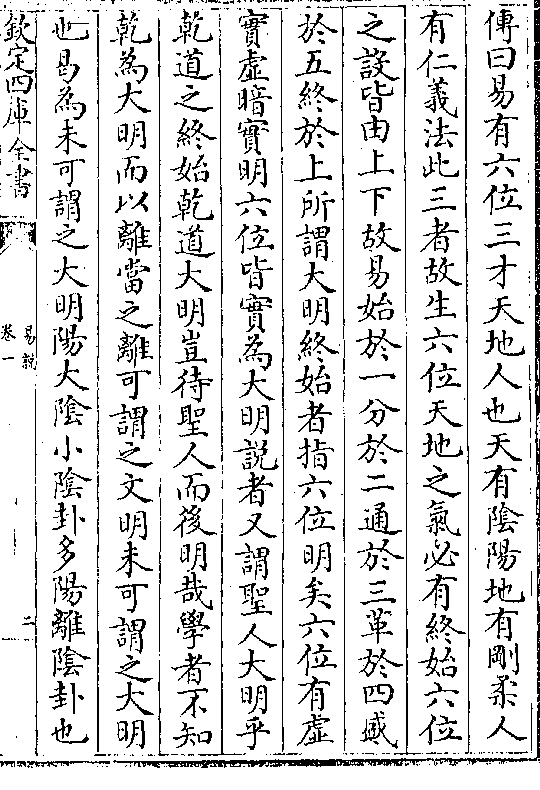 傳曰易有六位三才天地人也天有陰陽地有剛柔人
有仁義法此三者故生六位天地之氣必有終始六位
之設皆由上下故易始於一分於二通於三革於四盛
於五終於上所謂大明終始者指六位明矣六位有虛
實虛暗實明六位皆實為大明説者又謂聖人大明乎
乾道之終始乾道大明豈待聖人而後明哉學者不知
乾為大明而以離當之離可謂之文明未可謂之大明
也曷為未可謂之大明陽大陰小陰卦多陽離陰卦也
欽定四庫全書
易説
卷一
二